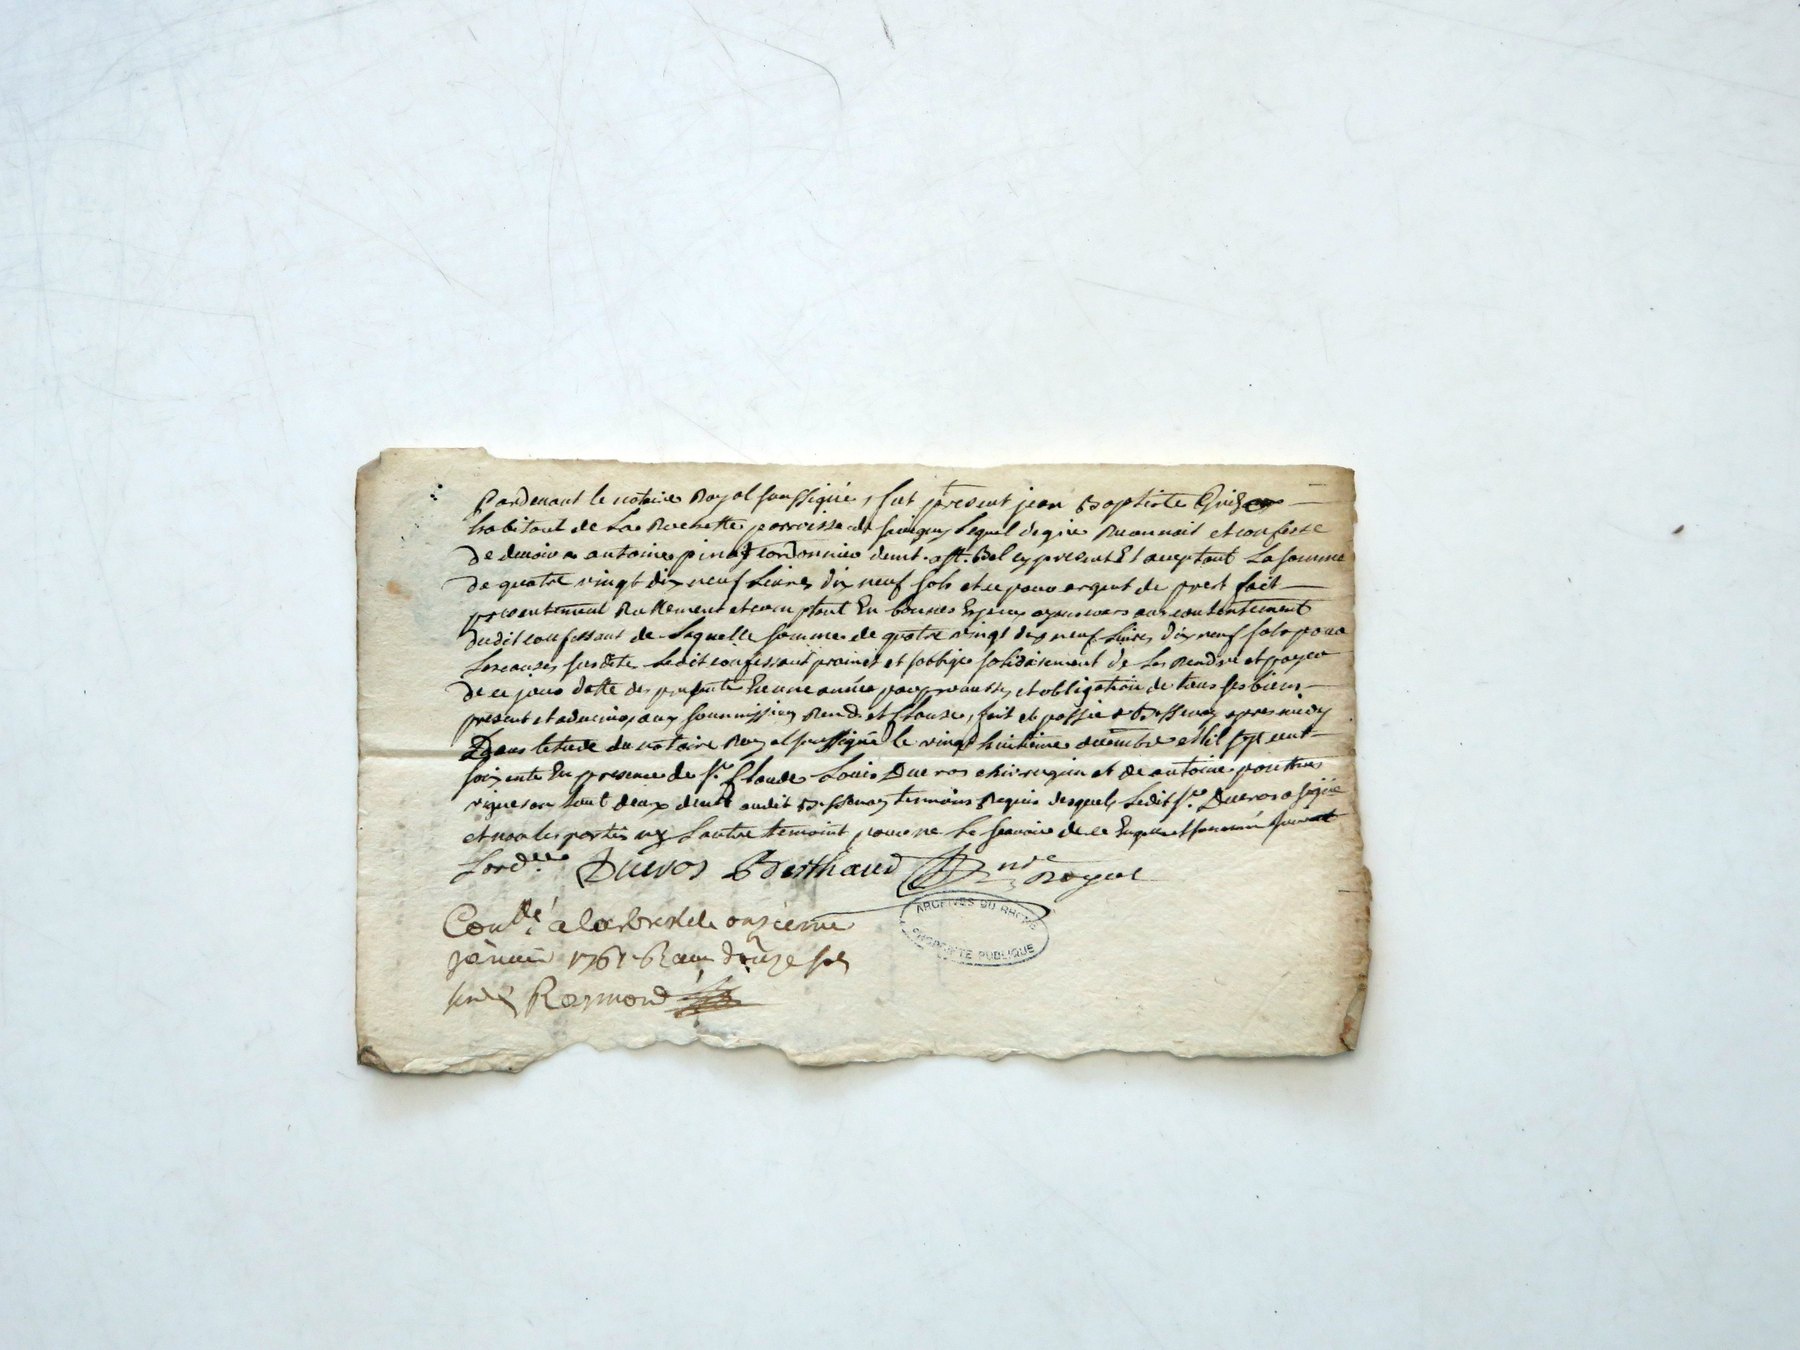 Pardevant le notaire Royal soussigné, fut présent jean Baptiste
habitant de La Rochette parroisse de savigny Lequel de gré Reconnoit et confesse
de devoir a antoine pinay cordonnier demt. a St. Bel cy present Et aceptant La somme
de quatre vingt dix neuf Livres dix neuf sols et ce pour argent de prest fait
presentement Reellement et comptant En bonnes Especes ayant cours au contentement
dudit confessant de Laquelle somme de quatre vingt dix neuf Livres dix neuf sols pour
Les causes susdite Ledit confessant promet et soblige solidairement de Les Rendre et payer
de ce jour datte des presente En une année par promesse et obligation de tous ses biens
present et advenir aux soumissions Rend. et Clause, fait et passé a Bessenay apres midy
Dans letude du notaire Royal soussigné le vingt huitieme decembre mil sept cent
soixante En presence de Sr. Claude Louis Ducros chirurgien et de antoine
vigneron tout deux demt. audit Bessenay temoins Requis desquels Ledit Sr. Ducros a signé
et non les parties ny Lautre temoint pour ne Le scavoir de ce Enquis et sommé suivant
Lord.ce Ducros Berthaud nre Royal
Conllé a larbresle onzieme
janvier 1761 Recu douze sols
Raymond
ARCHIVES DU RHONE
PROPRIETE PUBLIQUE